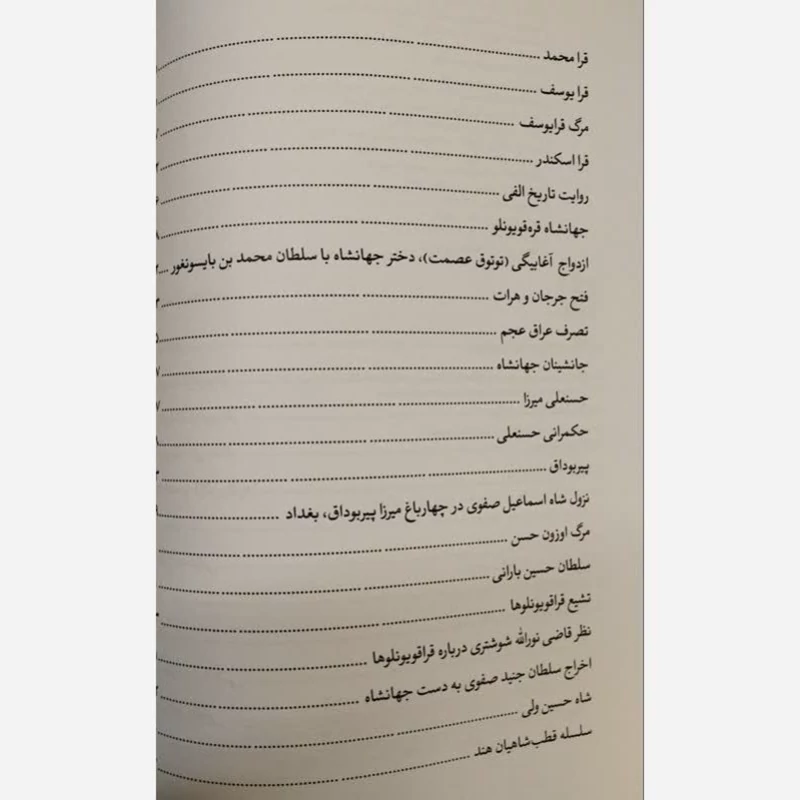 قرا محمد
قرا یوسف
مرگ قرایوسف
قرا اسکندر
روایت تاریخ الفی
جهانشاه قره‌قویونلو
ازدواج آغابیگی (توتوق عصمت)، دختر جهانشاه با سلطان محمد بن بایسونغور
فتح جرجان و هرات
تصرف عراق عجم
جانشینان جهانشاه
حسنعلی میرزا
حکمرانی حسنعلی
پیربوداق
نزول شاه اسماعیل صفوی در چهارباغ میرزا پیربوداق، بغداد
مرگ اوزون حسن
سلطان حسین بارانی
تشیع قراقویونلوها
نظر قاضی نورالله شوشتری درباره قراقویونلوها
اخراج سلطان جنید صفوی به دست جهانشاه
شاه حسین ولی
سلسله قطب‌شاهیان هند